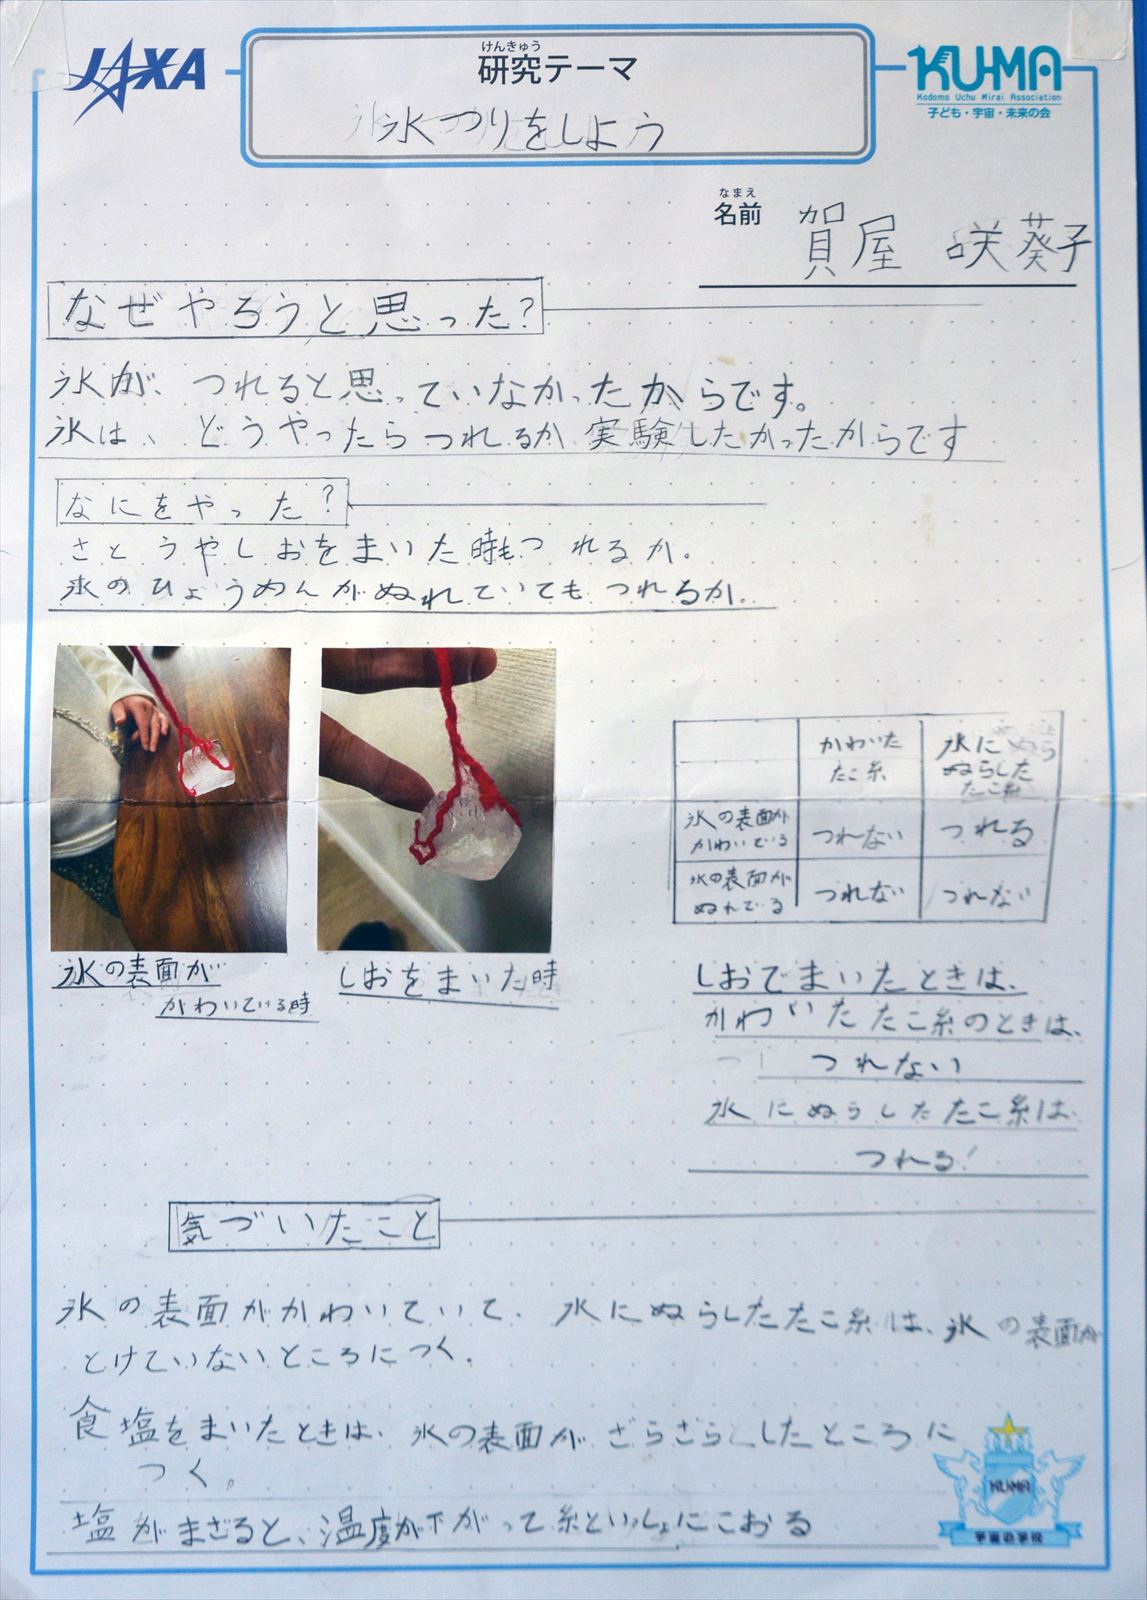 JAXA
けんきゅう
研究テーマ
氷つりをしよう
KU-MA
Kodomo Uchu Mirai Association
子ども・宇宙・未来の会
なまえ
名前
賀屋 咲葵子
なぜやろうと思った?
氷が、つれると思っていなかったからです。
氷は、どうやったらつれるか実験したかったからです
なにをやった?
さとうやしおをまいた時もつれるか。
氷のひょうめんがぬれていてもつれるか。
かわいた
たこ糸
水に
ぬらした
たこ糸
氷の表面が
かわいている
つれない
つれる
氷の表面が
ぬれてる
つれない
つれない
氷の表面が
かわいている時
しおをまいた時
しおでまいたときは、
かわいたたこ糸のときは、
つれない
水にぬらしたたこ糸は、
つれる!
気づいたこと
氷の表面がかわいていて、水にぬらしたたこ糸は、氷の表面が
とけていないところにつく。
食塩をまいたときは、氷の表面がざらざらしたところに
つく。
塩がまざると、温度が下がって糸といっしょにこおる
KU-MA
宇宙の学校